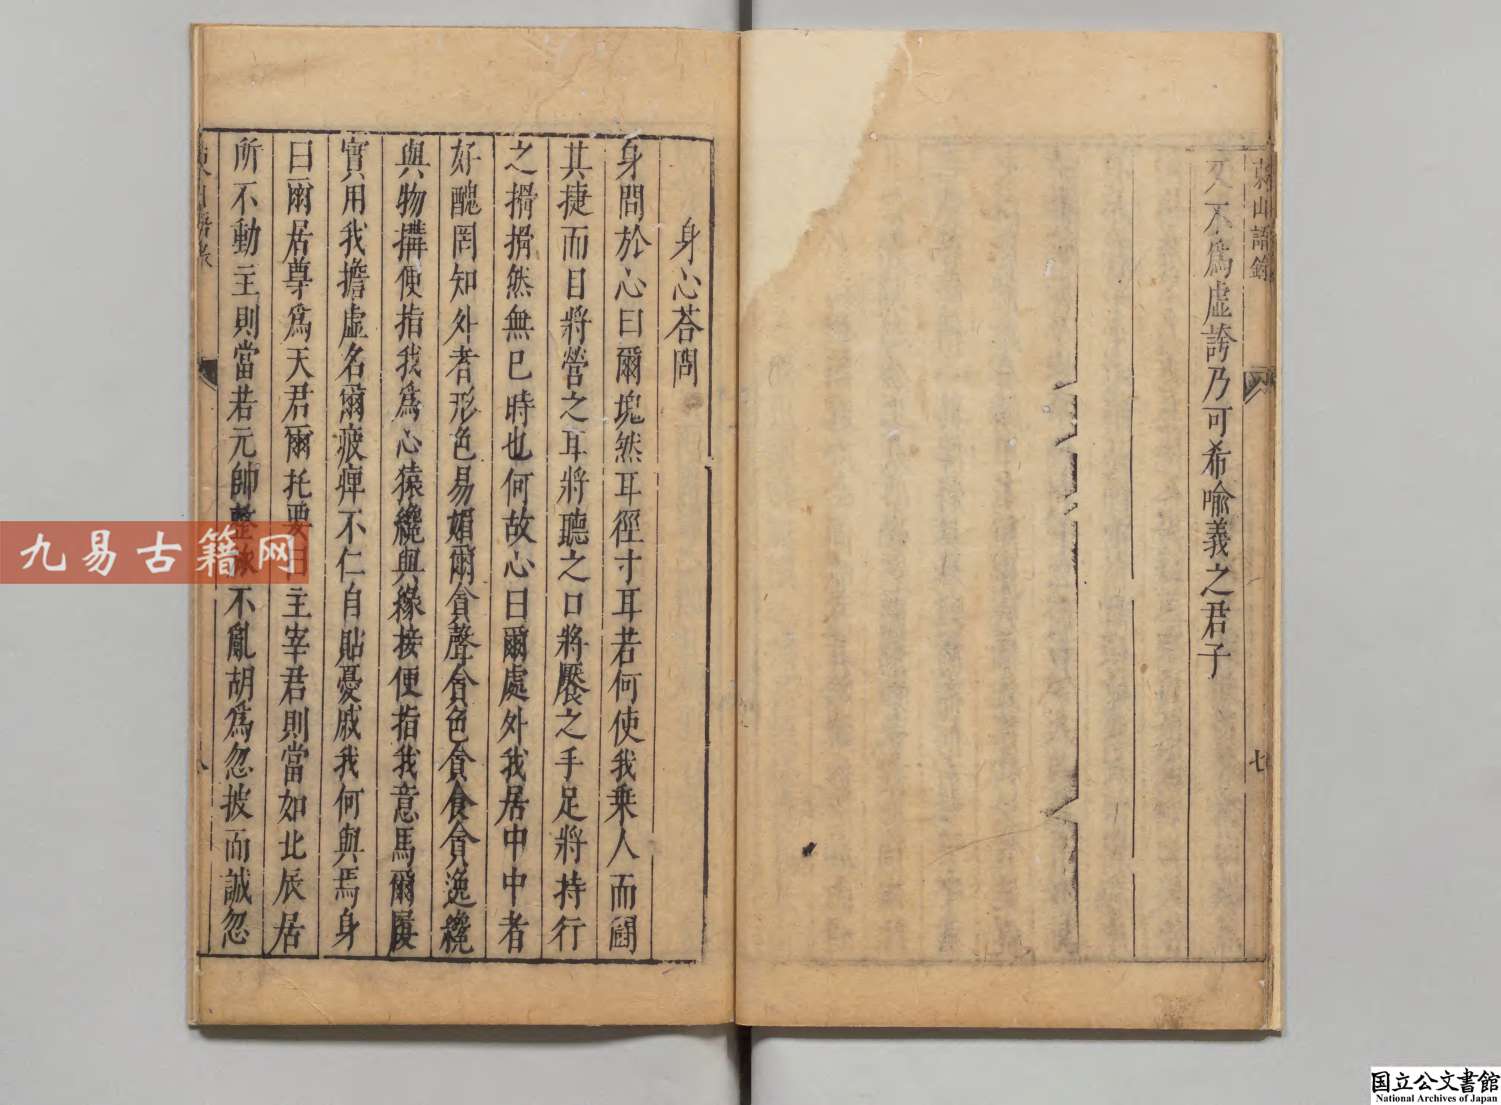 又不爲虛誇乃可希喻義之君子
山語錄
七
身心荅問
身問於心曰爾塊然耳徑寸耳若何使我乗人而鬭
其捷而目將營之耳將聽之口將饜之手足將持行
之搰搰然無已時也何故心曰爾處外我居中中者
好醜罔知外者形色易媚爾貪聲貪色貪食貪逸纔
與物搆便指我爲心猿纔與緣接便指我意馬爾屢
實用我擔虛名爾疲痺不仁自貽憂戚我何與焉身
曰爾居尊爲天君爾托要曰主宰君則當如北辰居
所不動主則當若元帥整 不亂胡爲忽披而誠忽
九易古籍网
国立公文書館
National Archives of Japan